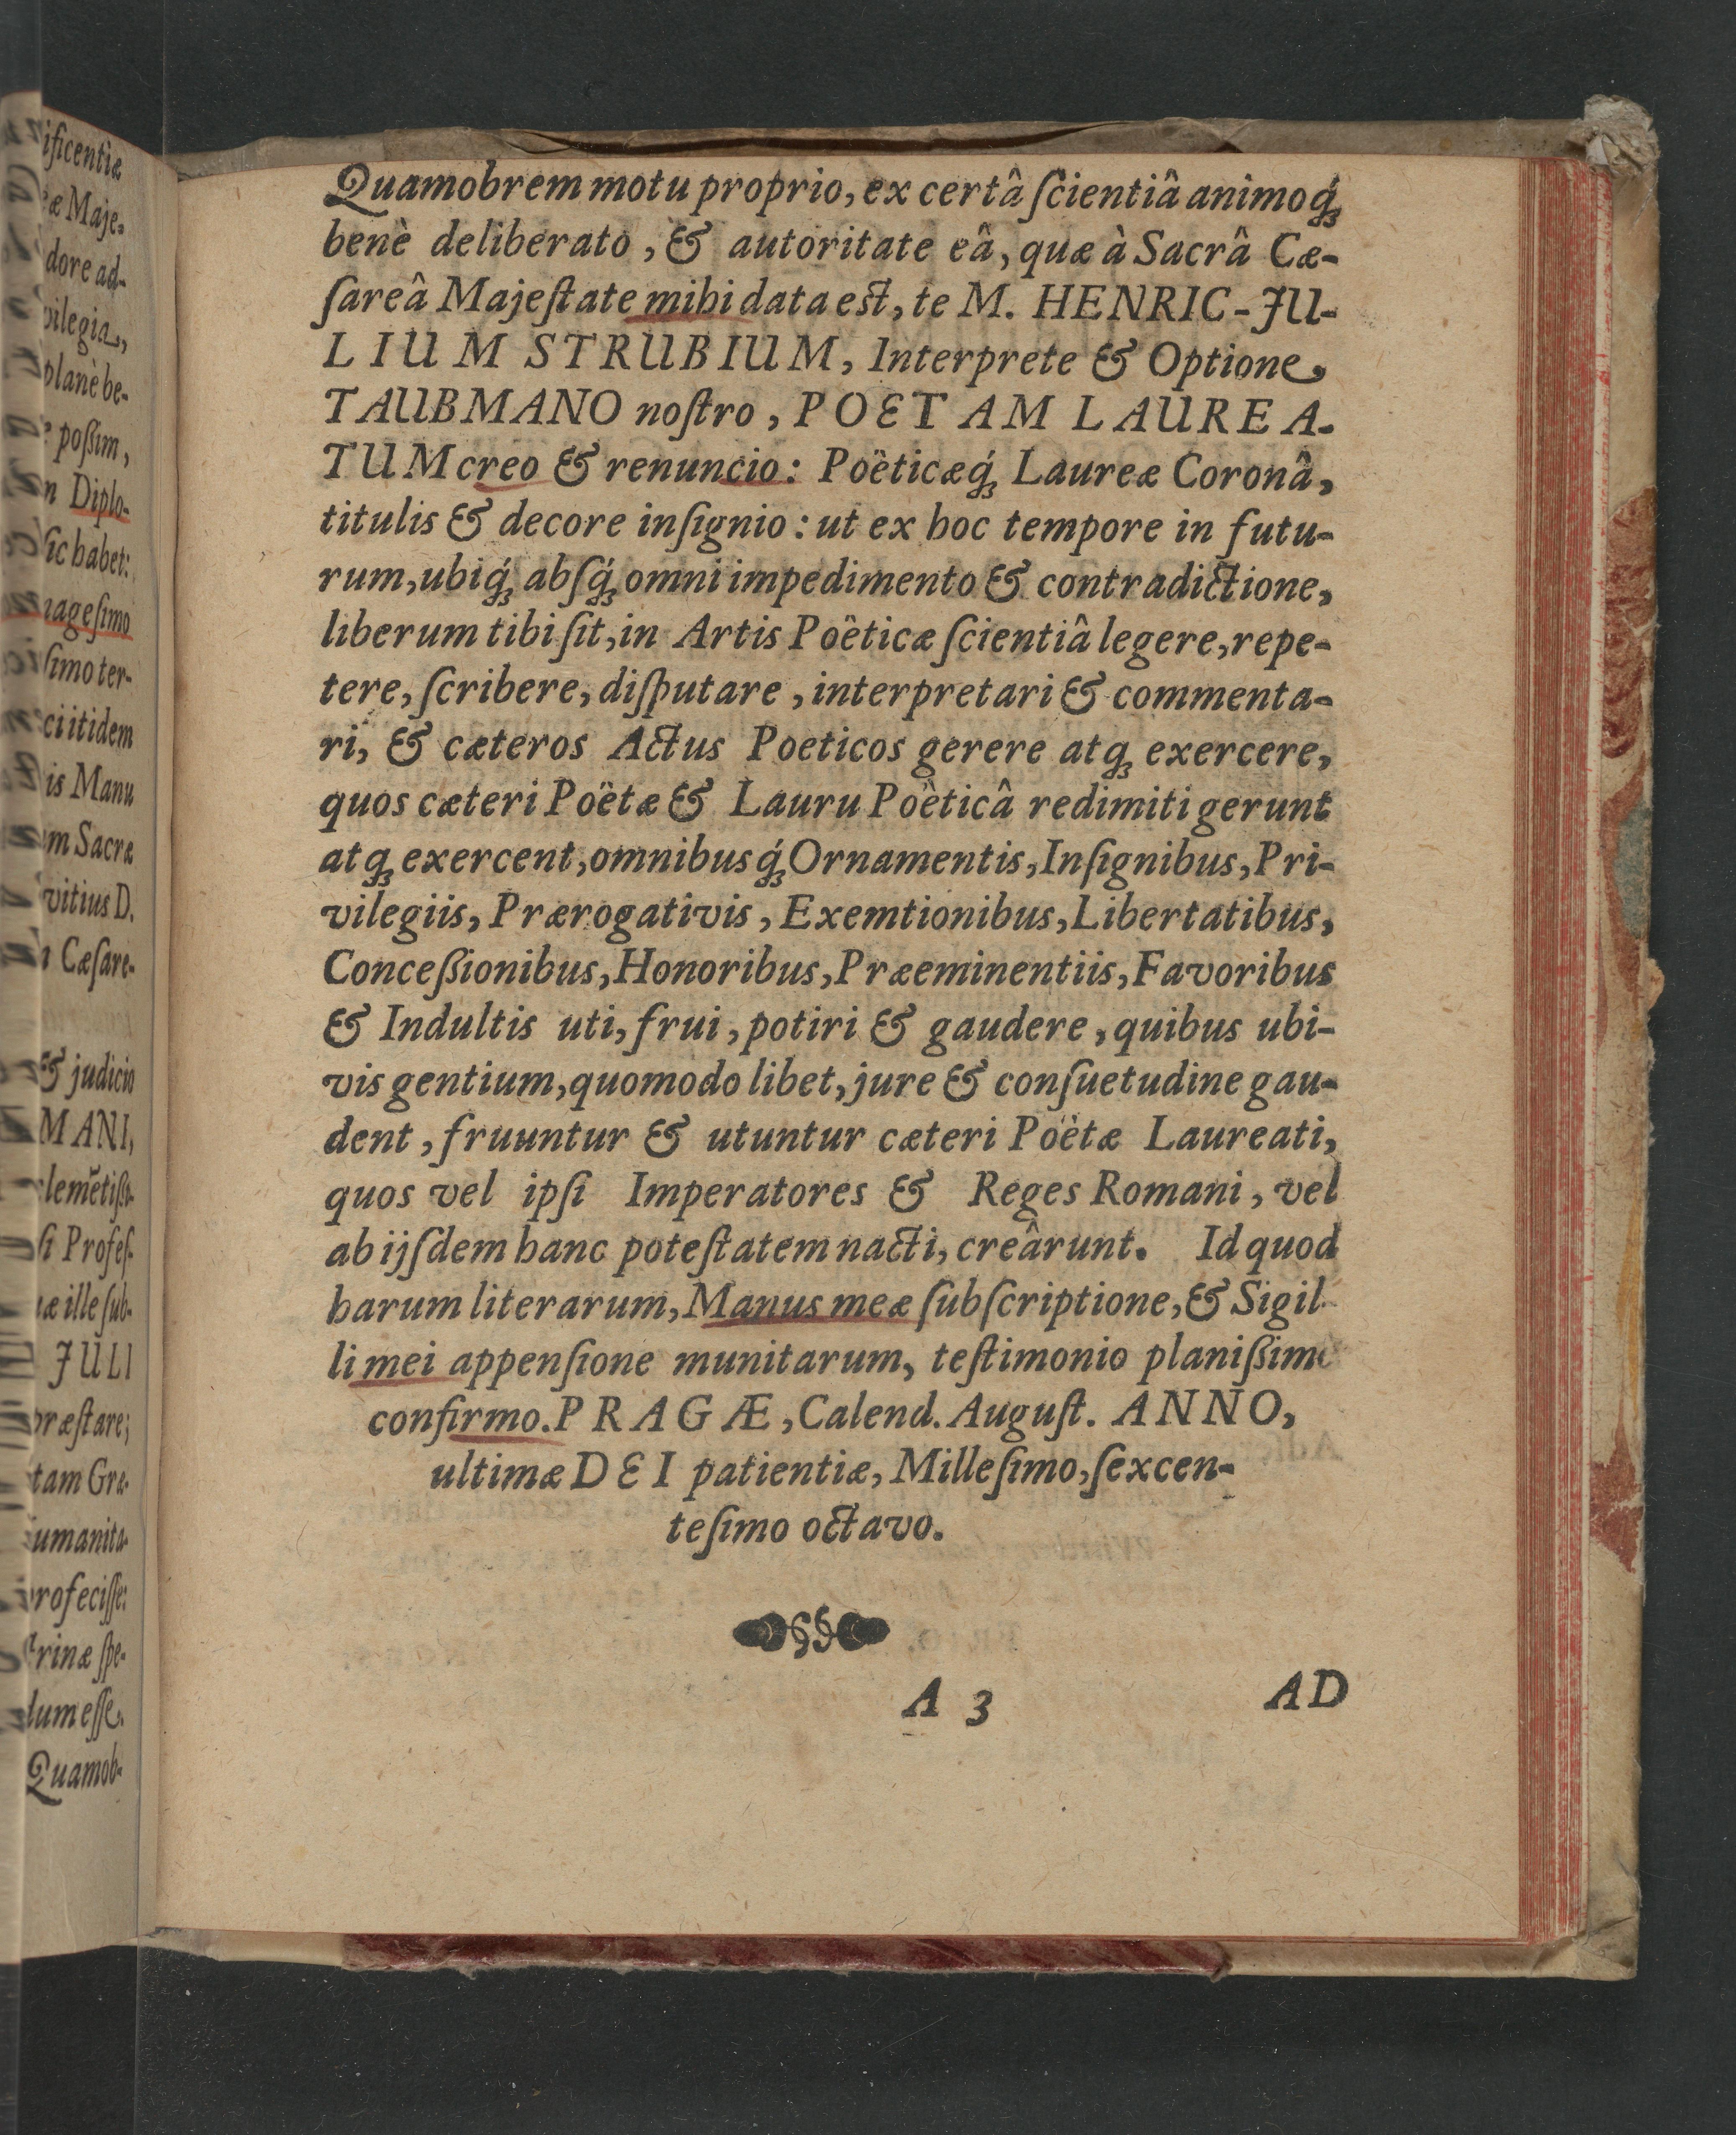 ificentiæ
æ Maje-
dore ad-
vilegia,
planè be-
poßim,
n Diplo-
ſic habet:
nageſimo
ſimo ter-
ciitidem
is Manu
m Sacræ
vitius D.
Cæſare-
& judicio
MANI,
lemẽtiſſ-
ſi Profeſ-
æ ille ſub-
JULI
præſtare;
tam Græ-
umanita-
profeciſſe:
trinæ ſpe-
dum eſſe.
Quamob-
Quamobrem motu proprio, ex certâ ſcientiâ animoq́ꝫ
benè deliberato, & autoritate eâ, quæ à Sacrâ Cæ-
ſareâ Majeſtate mihi data est, te M. HENRIC-JU-
LIUM STRUBIUM, Interprete & Optione
TAUBMANO noſtro, POETAM LAUREA-
TUM creo & renuncio: Poëticæq́ꝫ Laureæ Coronâ,
titulis & decore inſignio: ut ex hoc tempore in futu-
rum, ubiq́ꝫ abſq́ꝫ omni impedimento & contradictione,
liberum tibi ſit, in Artis Poëticæ ſcientiâ legere, repe-
tere, ſcribere, diſputare, interpretari & commenta-
ri, & cæteros Actus Poeticos gerere atqꝫ exercere,
quos cæteri Poëtæ & Lauru Poëticâ redimiti gerunt
atqꝫ exercent, omnibusq́ꝫ Ornamentis, Inſignibus, Pri-
vilegiis, Prærogativis, Exemtionibus, Libertatibus,
Conceßionibus, Honoribus, Præeminentiis, Favoribus
& Indultis uti, frui, potiri & gaudere, quibus ubi-
vis gentium, quomodo libet, jure & conſuetudine gau-
dent, fruuntur & utuntur cæteri Poëtæ Laureati,
quos vel ipſi Imperatores & Reges Romani, vel
ab ijſdem hanc poteſtatem nacti, creârunt. Id quod
harum literarum, Manus meæ ſubſcriptione, & Sigil-
li mei appenſione munitarum, teſtimonio planißimo
confirmo. PRAGÆ, Calend. Auguſt. ANNO,
ultimæ DEI patientiæ, Milleſimo, ſexcen-
teſimo octavo.
A 3
AD